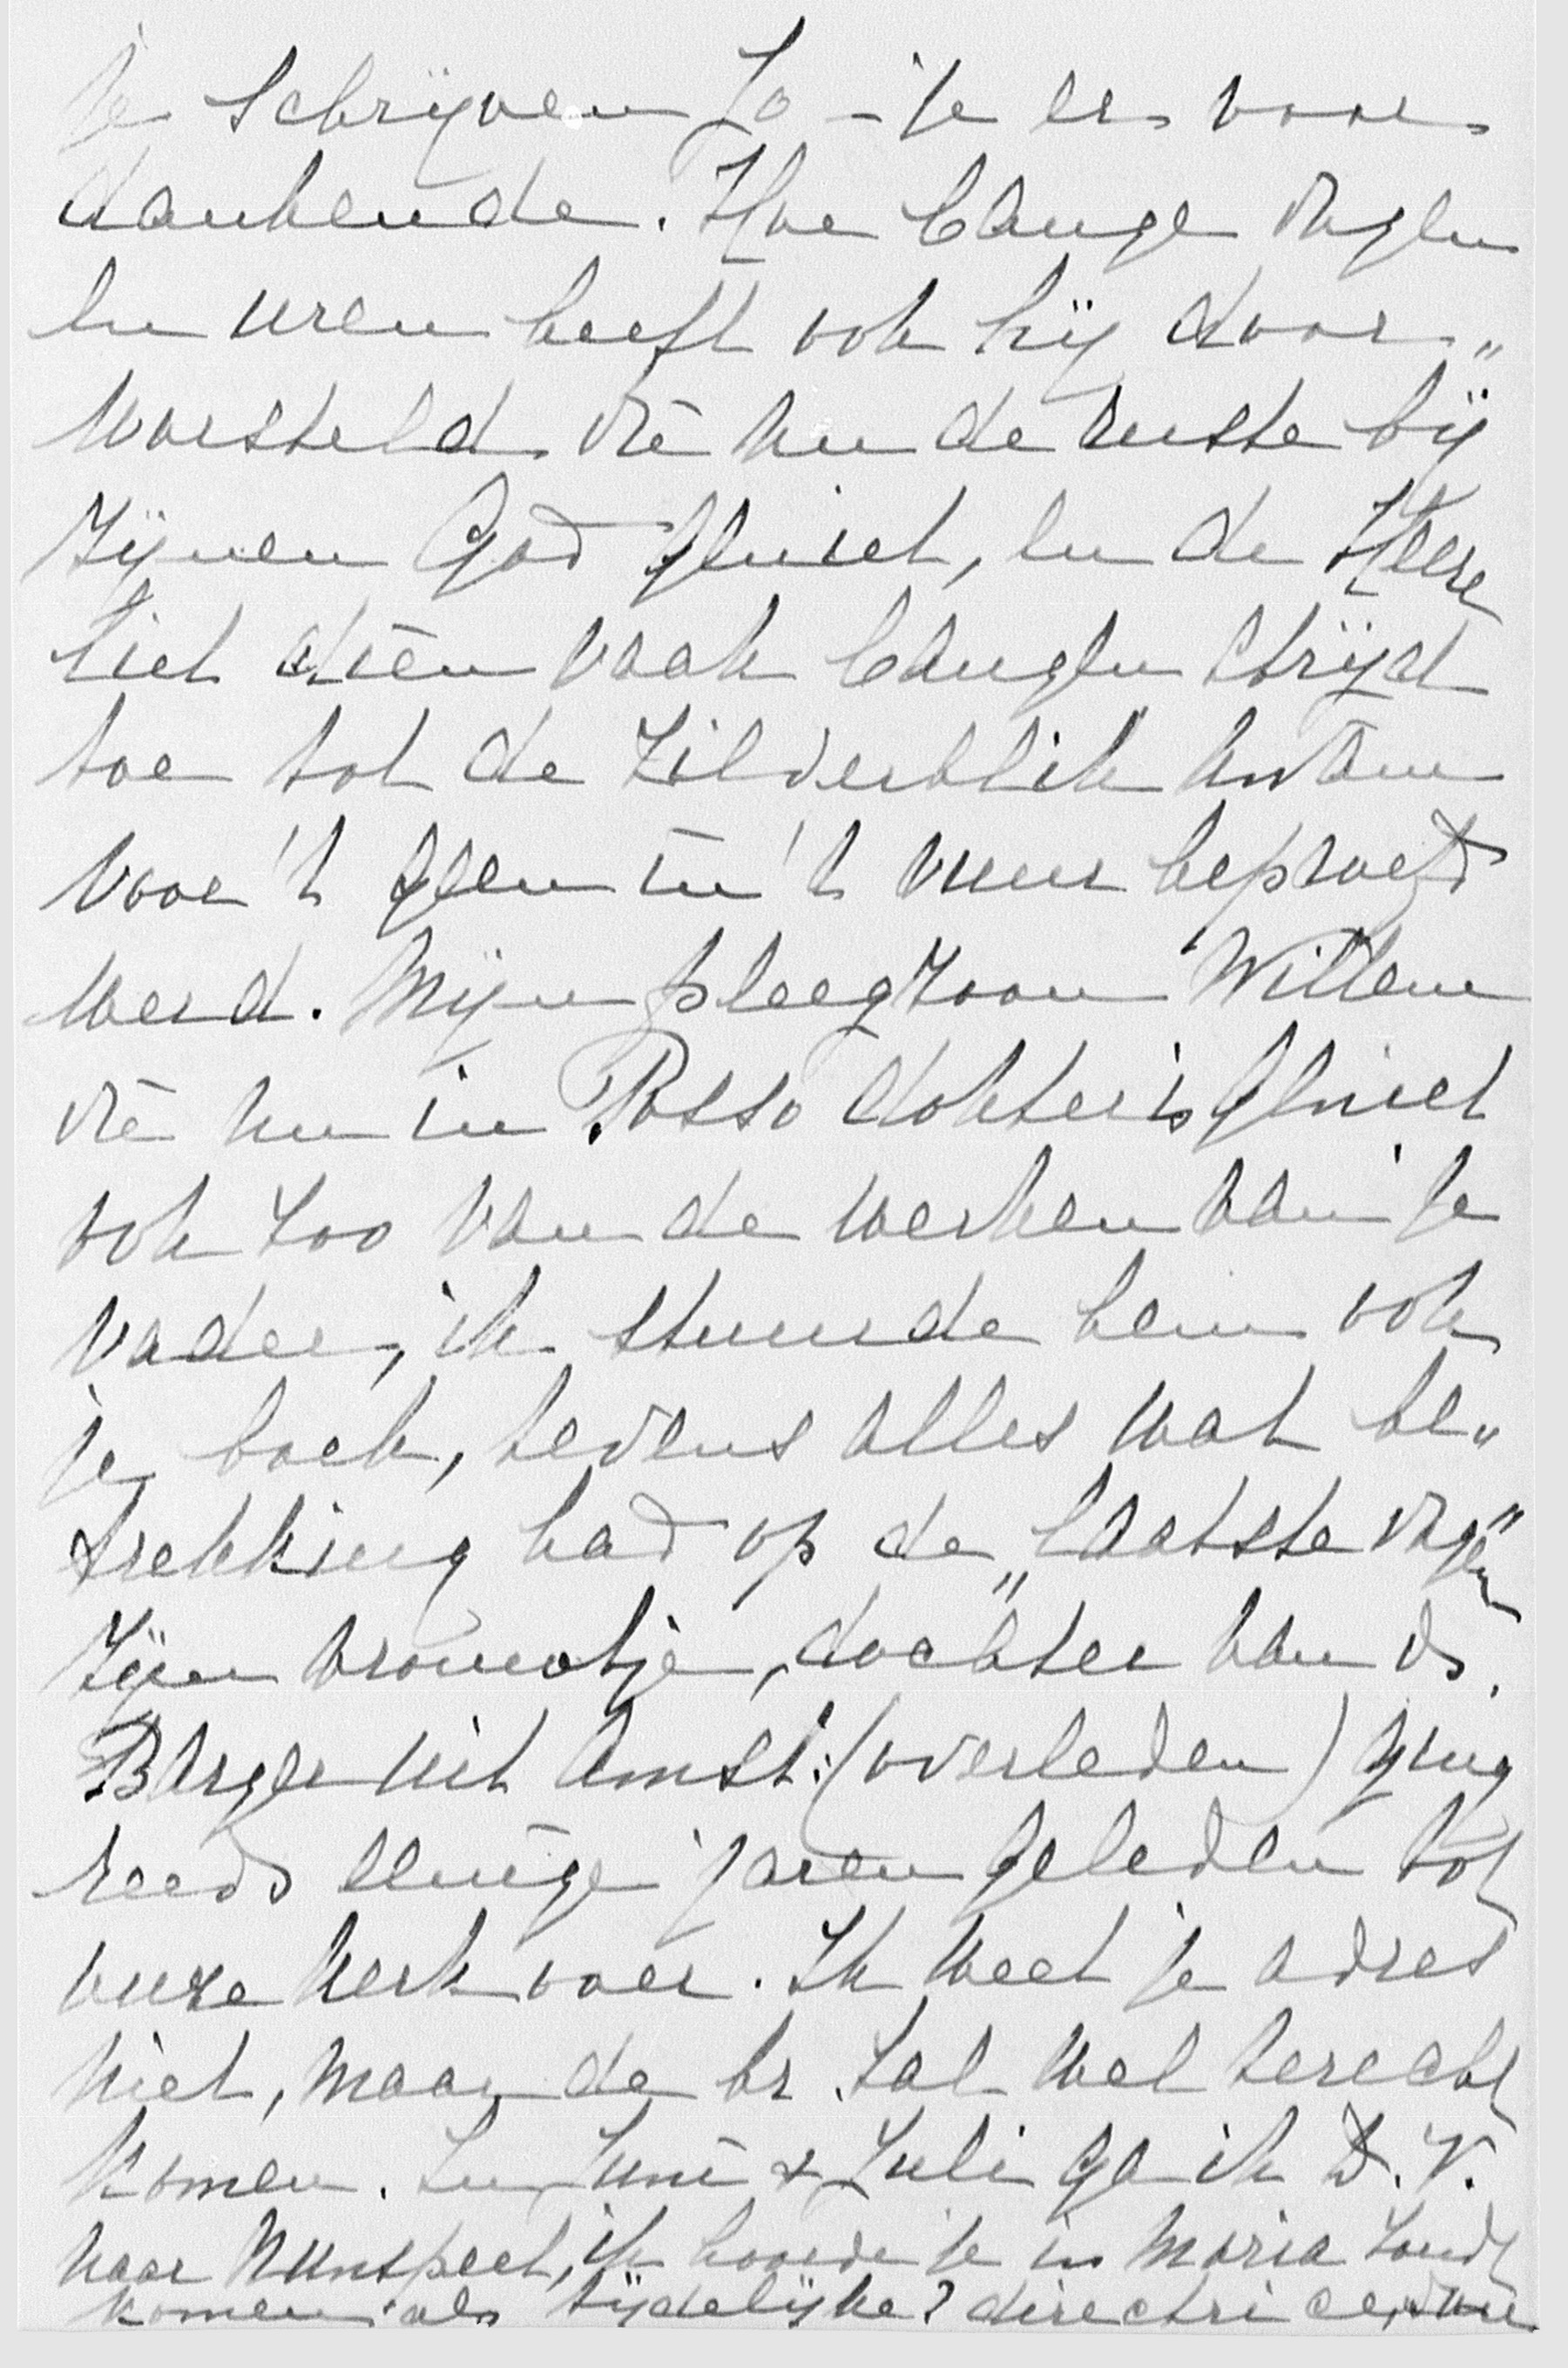 te schrijven Jo - je er voor
dankende. Hoe bange dagen
en uren heeft ook hij door„
worsteld, die nu de ruste bij
zijnen God geniet, en de Heere
liet dien vaak bangen strijd
toe tot de zilverblik kwam
voor 't geen in 't vuur beproefd
werd. Mijn pleegzoon Willem
die nu in Posso dokter is geniet
ook zoo van de werken van je
vader, ik stuurde hem ook
je boek, tevens alles wat be„
trekking had op de „laatste dagen"
Zijn vrouwtje, dochter van ds.
Barger uit Amst: (overleden) ging
reeds eenige jaren geleden tot
onze kerk over. Ik weet je adres
niet, maar de br. zal wel terecht
komen. In Juni & Juli ga ik D.V.
naar Nunspeet, ik hoorde je in Maria zoudt
komen als tijdelijke? directrice,